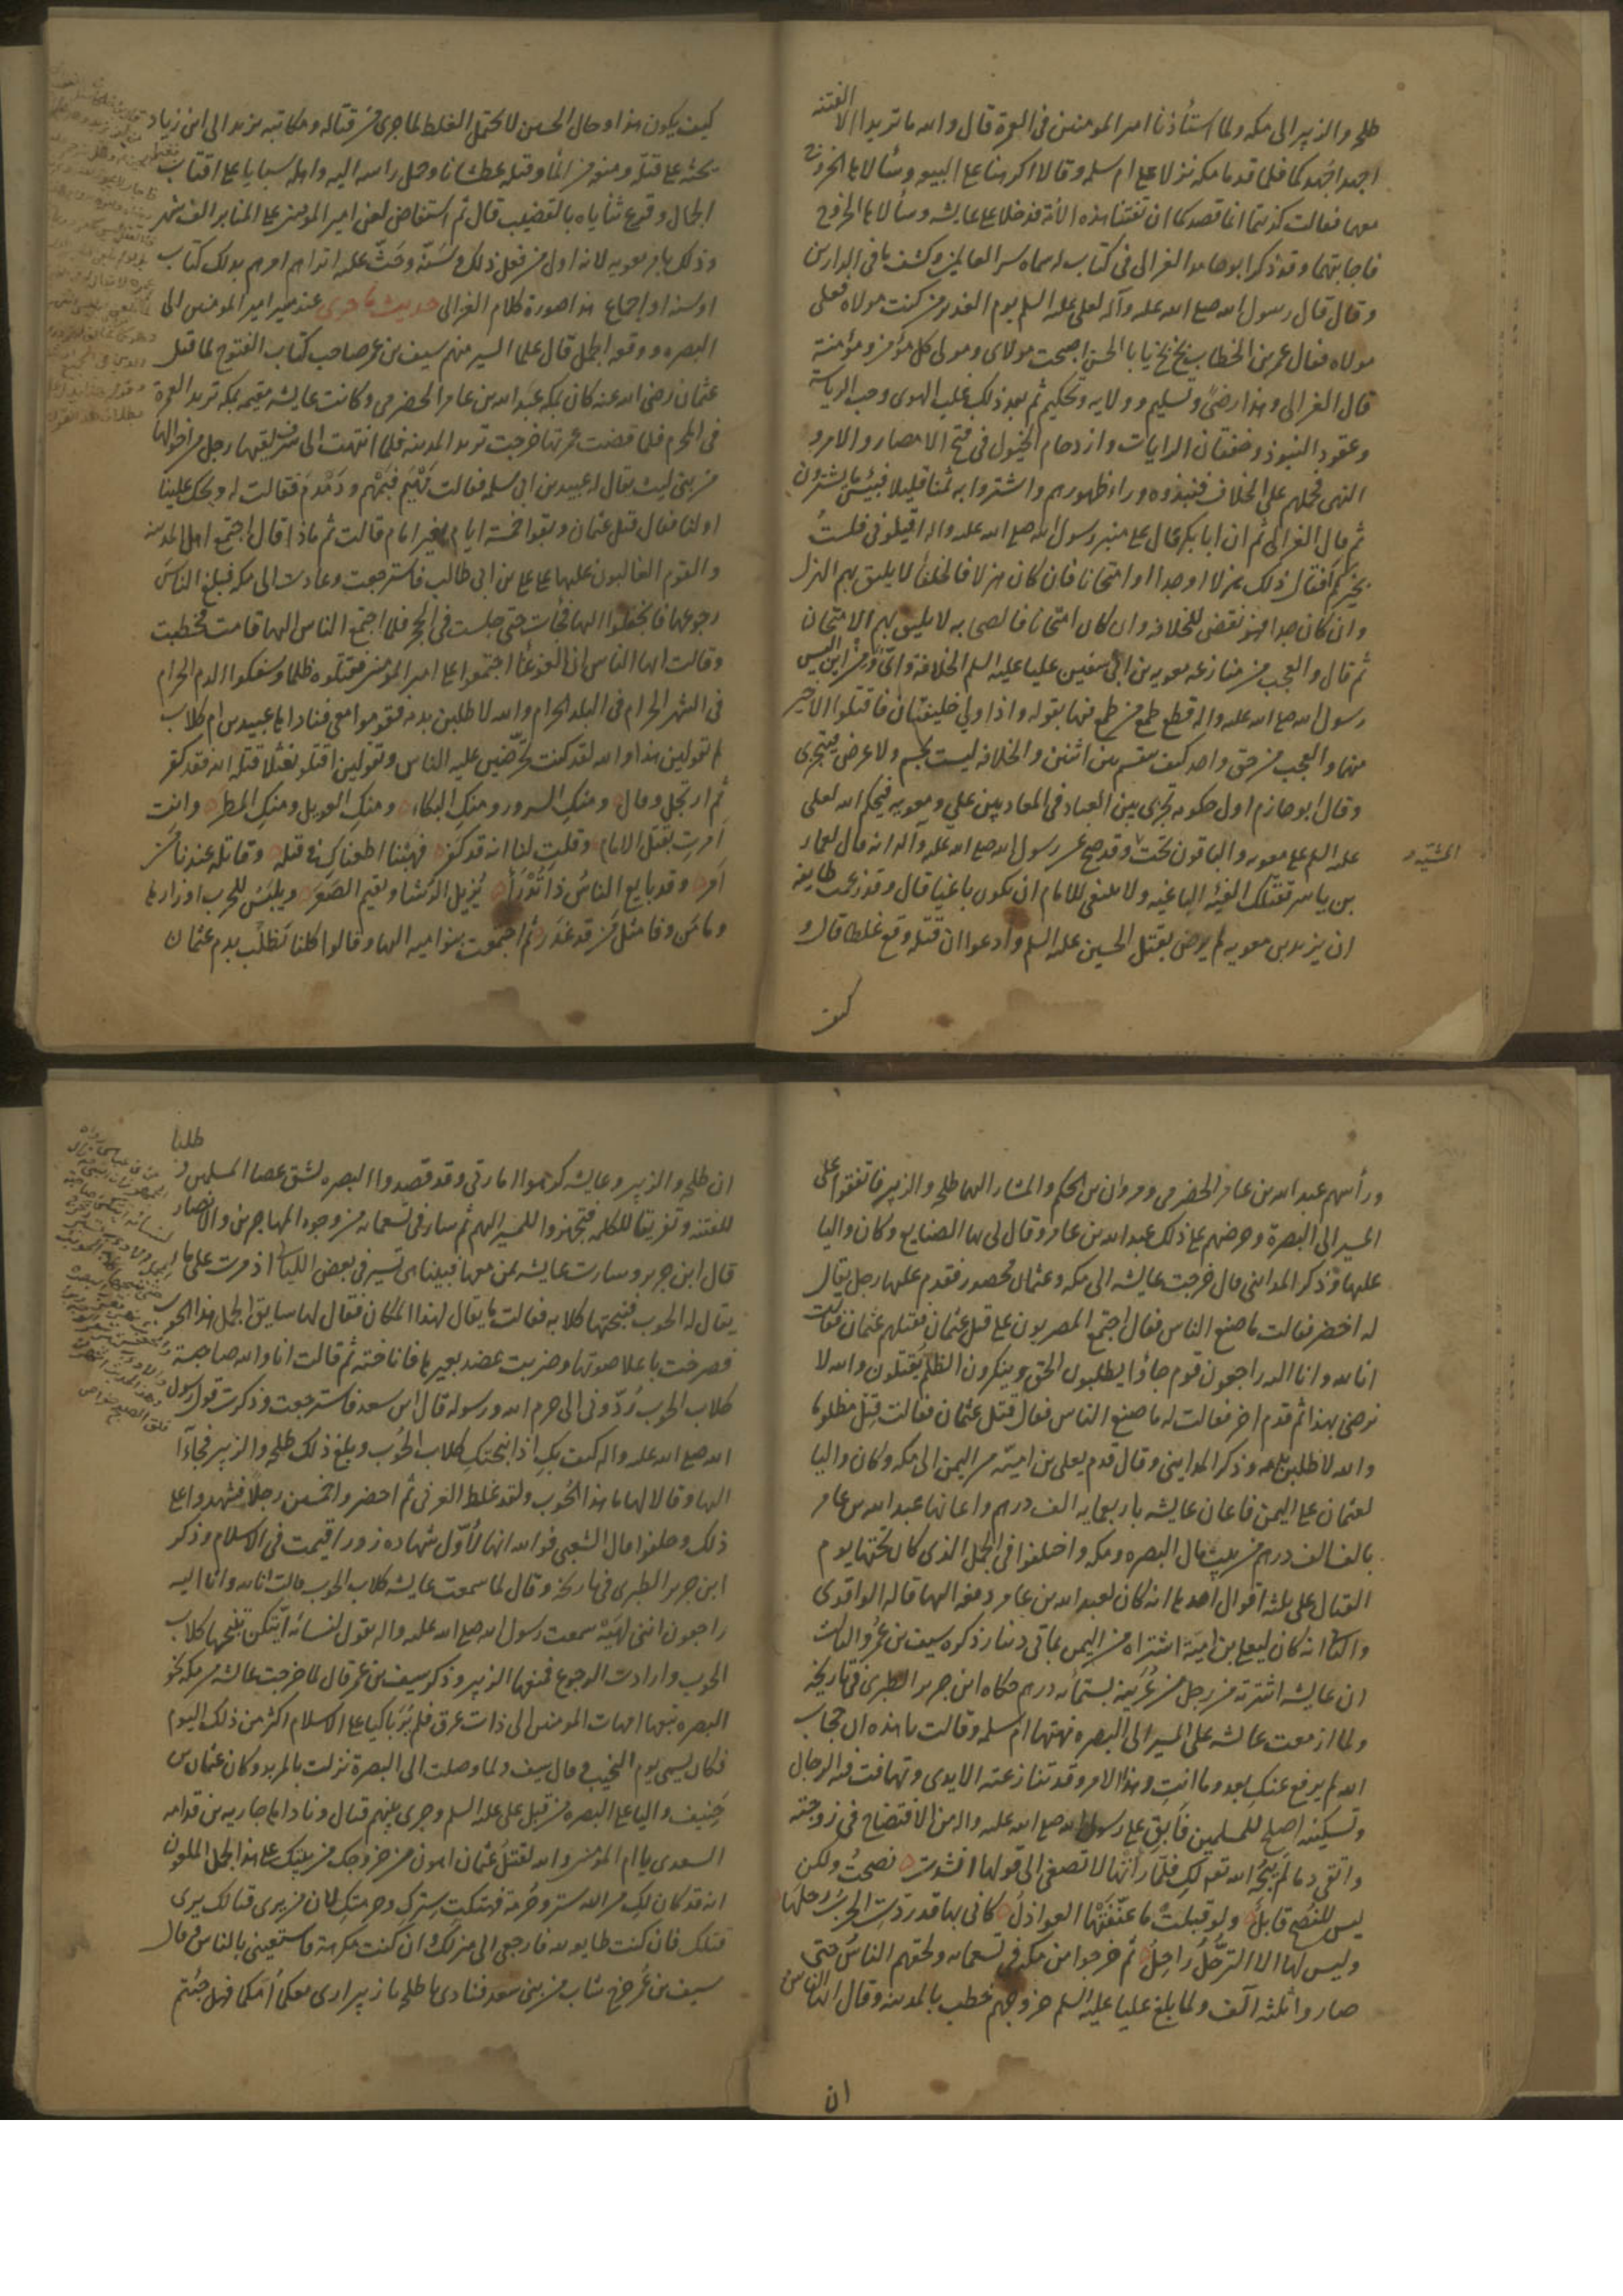 طلحه والزبير الى مكه ولما استأذنا امير المومنين في العمرة قال والله ما تريدا الا الفتنه
اجهدا جهدكما فلما قدما مكه نزلا على ام سلمه وقالا اكرهنا على البيعه وسألاها الخروج
معهما فقالت كذبتما انما قصدكما ان تفتنا هذه الأمة فدخلا على عايشه وسألاها الخروج
فاجابتهما وقد ذكر ابو حامد الغزالى فى كتاب له سماه سر العالمين وكشف ما فى الدارين
وقال قال رسول الله صلى الله عليه وآله لعلى عليه السلم يوم الغدير من كنت مولاه فعلى
مولاه فقال عمر بن الخطاب بخ بخ يا با الحسن اصبحت مولاى ومولى كل مؤمن ومؤمنة
قال الغزالى وهذا رضىً وتسليم وولايه وتحكيم ثم بعد ذلك غلب الهوى وحب الرياسة
وعقود البنود وخفقان الرايات وازدحام الخيول فى فتح الامصار والامر و
النهى فحملهم على الخلاف فنبذوه وراء ظهورهم واشتروا به ثمنا قليلا فبئس ما يشترون
ثم قال الغزالى ثم ان ابا بكر قال على منبر رسول الله صلى الله عليه واله اقيلونى فلستُ
بخيركم أفقال ذلك هزلا او جدا او امتحانا فان كان هزلا فالخلفا لا يليق بهم الهزل
وان كان جدا فهو نقض للخلافه وان كان امتحانا فالصحابه لا يليق بهم الامتحان
ثم قال والعجب من منازعه معويه بن ابى سفين عليا عليه السلم الخلافة وانّى ومن اين اليس
رسول الله صلى الله عليه واله قطع طمع من طمع فيها بقوله واذا ولى خليفتان فاقتلوا الاخير
منهما والعجب من حق واحد كيف ينقسم بين اثنين والخلافه ليست بجسم ولا عرض فيتجزى
وقال ابو حازم اول حكومه تجرى بين العباد فى المعاد بين على ومعويه فيحكم الله لعلى
عليه السلم على معويه والباقون تحت المشيّه وقد صح عن رسول الله صلى الله عليه وآله انه قال لعمار
بن ياسر تقتلك الفئه الباغيه ولا ينبغى للامام ان يكون باغيا قال وقد زعمت طايفه
ان يزيد بن معويه لم يرض بقتل الحسين عليه السلم وادعوا ان قتله وقع غلطا قال و
كيف
كيف يكون هذا وحال الحسين لا يحتمل الغلط لما جرى من قتاله ومكاتبه يزيد الى ابن زياد
يحثه على قتله ومنعه من الماء وقتله عطشانا وحمل راسه اليه واهله سبايا على اقتاب
الجمال وقرع ثناياه بالقضيب قال ثم استفاض لعن امير المومنين على المنابر الف شهر
وذلك بامر معويه
اوسنه او اجماع هذا صورة كلام الغزالى حديث ما جرى عند مسير امير المومنين الى
البصره ووقعه الجمل قال علما السير منهم سيف بن عمر صاحب كتاب الفتوح لما قتل
عثمان رضى الله عنه كان بمكه عبد الله بن عامر الحضرمى وكانت عايشه مقيمه بمكه تريد العمرة
فى المحرم فلما قضت عمرتها خرجت تريد المدينه فلما انتهت الى سرف لقيها رجل من اخوالها
من بنى ليث يقال له عبيد بن ابى سلمه فقالت مهيم فهمهم ودمدم فقالت له ويحك علينا
او لنا فقال قتل عثمان وبقوا خمسة ايام بغير امام قالت ثم ماذا قال اجتمع اهل المدينه
والقوم الغالبون عليها على على بن ابى طالب فاسترجعت وعادت الى مكه فبلغ الناسَ
رجوعها فانجفلوا اليها فجأت حتى جلست فى الحجر فلما اجتمع الناس اليها قامت فخطبت
وقالت ايها الناس ان الغوغا اجتمعوا على امير المومنين فقتلوه ظلما وسفكوا الدم الحرام
فى الشهر الحرام فى البلد الحرام والله لاطلبن بدمه فقوموا معى فناداها عبيد بن ام كلاب
لم تقولين هذا والله لقد كنت تحرّضين عليه الناس وتقولين اقتلو نعثلا قتله الله فقد كفر
ثم ارتجل وقال ومنكِ السرور ومنكِ البكاء ومنكِ العويل ومنكِ المطر وانت
اَمرتِ بقتل الامام وقلتِ لنا انه قد كفر فهبنا اطعناكِ فى قتله وقاتله عندنا من
اَمر وقد بايع الناسُ ذا تُدْرَأ يُزيل الشبا ويقيم الصَّعَر ويلبَسُ للحرب اوزارها
وما مَن وفا مثلُ من قد غَدَر ثم اجتمعت بنو اميه اليها وقالوا كلنا نطلب بدم عثمان
ورأسهم عبد الله بن عامر الحضرمى ومروان بن الحكم والمشار اليهما طلحه والزبير فاتفقوا على
المسير الى البصرة وحرضهم على ذلك عبد الله بن عامر وقال لى بها الصنايع وكان واليا
عليها وذكر المداينى قال خرجت عايشه الى مكه وعثمان محصور فقدم عليها رجل يقال
له اخضر فقالت ما صنع الناس فقال اجتمع المصريون على قتل عثمان فقتلهم عثمان فقالت
انا لله وانا اليه راجعون قوم جاؤا يطلبون الحق وينكرون الظلم يقتلون والله لا
نرضى بهذا ثم قدم اخر فقالت له ما صنع الناس فقال قتل عثمان فقالت قتل مظلوما
والله لاطلبن بدمه وذكر المداينى وقال قدم يعلى بن اميّه من اليمن الى مكه وكان واليا
لعثمان على اليمن فاعان عايشه باربعمايه الف درهم واعانها عبد الله بن عامر
بالف الف درهم من بيت مال البصره ومكه واختلفوا فى الجمل الذى كان تحتها يوم
القتال على ثلثه اقوال احدها انه كان لعبد الله بن عامر دفعه اليها قاله الواقدى
والثانى انه كان ليعلى بن اميّة اشتراه من اليمن بمأتى دينار ذكره سيف بن عُمر والثالث
ان عايشه اشترته من رجل من عُرَينه بستمأئه درهم حكاه ابن جرير الطبرى فى تاريخه
ولما ازمعت عايشه على المسير الى البصره نهتها ام سلمه وقالت يا هذه ان حجاب
الله لم يرفع عنكِ بعد وما انتِ وهذا الامر وقد تنازعته الايدى وتهافت فيه الرجال
وتسكينه اصلح للمسلمين فابقى على رسول الله صلى الله عليه واله من الافتضاح فى زوجته
واتقى دما لم يبحُه الله تعالى لكِ فلمّا رأتها لا تصغى الى قولها انشدت نصحتُ ولكن
ليس للنُصح قابلُ ولو قبلت ما عنّفتها العواذل كانى بها قد ردّت الحربُ رحلَها
وليس لها الا الترجُّل راحِلُ ثم خرجوا من مكه فى تسعمايه ولحقهم الناسُ حتى
صاروا ثلثه آلاف ولما بلغ عليا عليه السلم خروجهم خطب بالمدينه وقال ايها الناس
ان
ان طلحه والزبير وعايشه كرهوا امارتى وقد قصدوا البصره لشق عصا المسلمين و طلبا
للفتنه وتفريقا للكلمه فتجهزوا للمسير اليهم ثم سار فى تسعمايه من وجوه المهاجرين والانصار
قال ابن جرير وسارت عايشه بمن معها فبينا هى تسير فى بعض الليالى اذ مرت على ماء
يقال له الحوب فنبحتها كلابه فقالت ما يقال لهذا المكان فقال لها سايق الجمل هذا الحوب
فصرخت باعلا صوتها وضربت عضد بعيرها فاناخته ثم قالت انا والله صاحبة
كلاب الحوب رُدّونى الى حرم الله ورسوله قال ابن سعد فاسترجعت وذكرت قول رسول
الله صلى الله عليه واله كيف بكِ اذا نبحتكِ كلاب الحوب وبلغ ذلك طلحه والزبير فجاءآ
اليها وقالا لها ما هذا الحُوب ولقد غلط العرنى ثم احضروا خمسين رجلاً فشهدوا على
ذلك وحلفوا قال الشعبى فوالله انها لأوّل شهاده زور اقيمت فى الاسلام وذكر
ابن جرير الطبرى فى تاريخه وقال لما سمعت عايشه كلاب الحوب قالت انا لله وانا اليه
راجعون اننى لهِيَه سمعت رسول الله صلى الله عليه واله يقول لنسائه أيّتكن تنبحها كلاب
الحوب وارادت الرجوع فمنعها الزبير وذكر سيف بن عمر قال لما خرجت عايشه من مكه نحو
البصره تبعها امهات المومنين الى ذات عرق فلم يُرَ باكيا على الاسلام اكثر من ذلك اليوم
فكان يسمى يوم النحيب قال سيف ولما وصلت الى البصرة نزلت بالمربد وكان عثمان بن
حُنيف واليا على البصره من قبل على عليه السلم وجرى بينهم قتال وناداها جاريه بن قدامه
السعدى يا ام المؤمنين والله لقتل عثمان اهون من خروجك من بيتك على هذا الجمل الملعون
انه قد كان لكِ من الله ستر وحُرمة فهتكتِ ستركِ وحرمتكِ لان من يرى قتالك يرى
قتلك فان كنت طايعه فارجعى الى منزلك وان كنت مكرهة فاستعينى بالناس وقال
سيف بن عُمر خرج شاب من بنى سعد فنادى يا طلحه يا زبير ارى معكما اُمّكما فهل جئتم